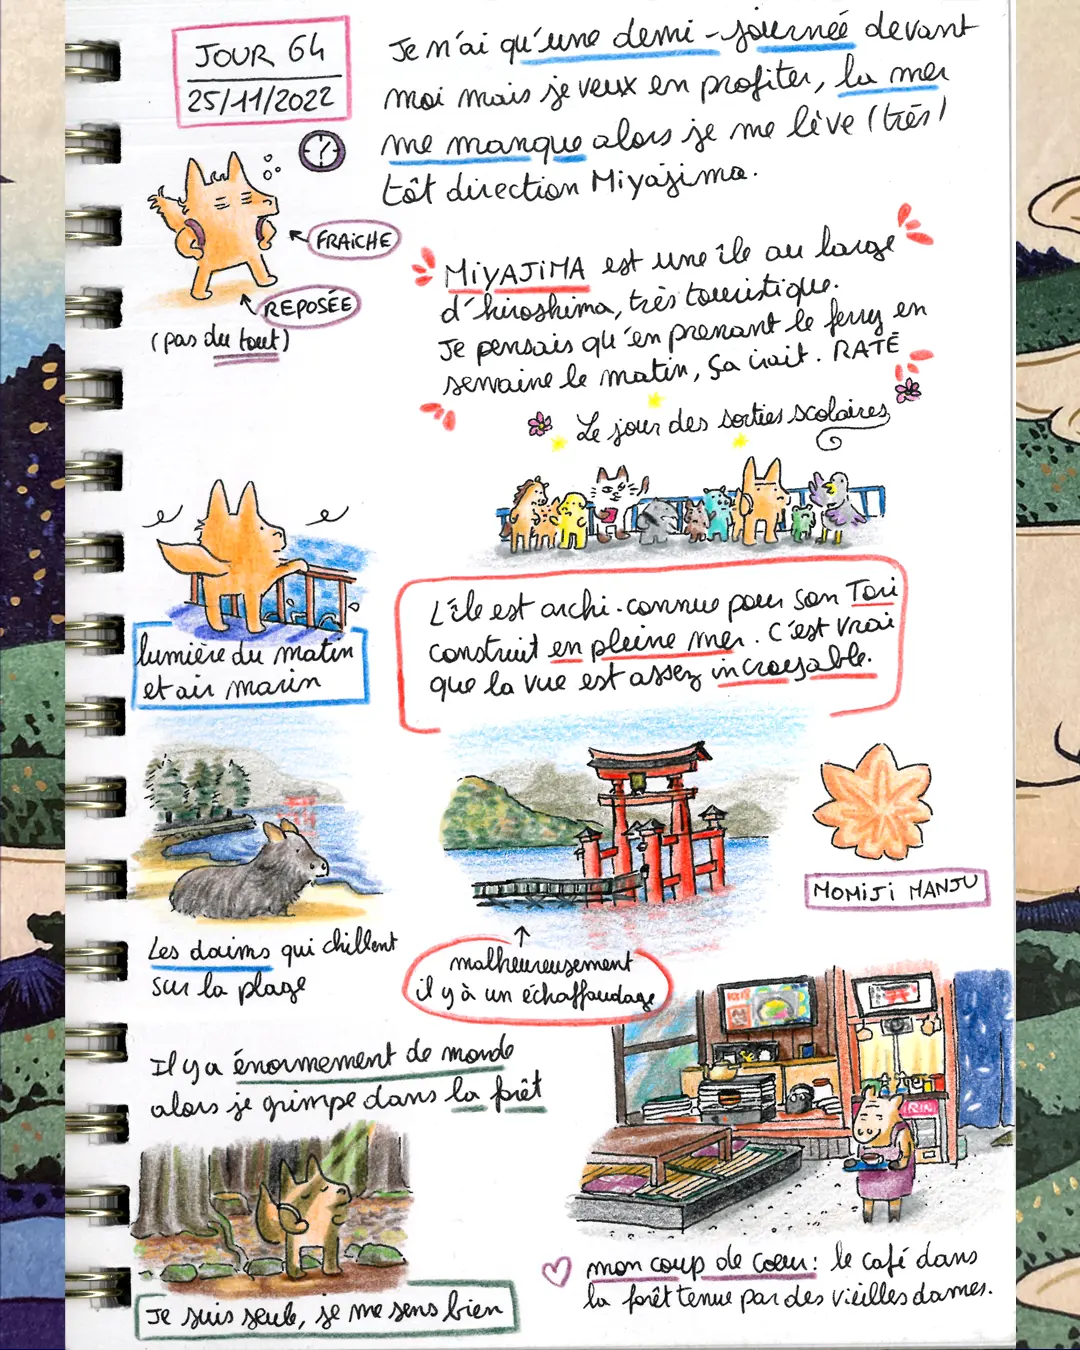 JOUR 64
25/11/2022
Je n'ai qu'une demi-journée devant
moi mais je veux en profiter, la mer
me manque alors je me lève (très)
tôt direction Miyajima.
FRAÎCHE
REPOSÉE
(pas du tout)
MIYAJIMA est une île au large
d'hiroshima, très touristique.
Je pensais qu'en prenant le ferry en
semaine le matin, ça irait. RATÉ
Le jour des sorties scolaires
lumière du matin
et air marin
L'île est archi-connue pour son Tori
construit en pleine mer. C'est vrai
que la vue est assez incroyable.
MOMIJI MANJU
Les daims qui chillent
sur la plage
malheureusement
il y à un échaffaudage
Il y a énormement de monde
alors je grimpe dans la forêt
RIN
Je suis seule, je me sens bien
mon coup de coeur : le café dans
la forêt tenue par des vieilles dames.